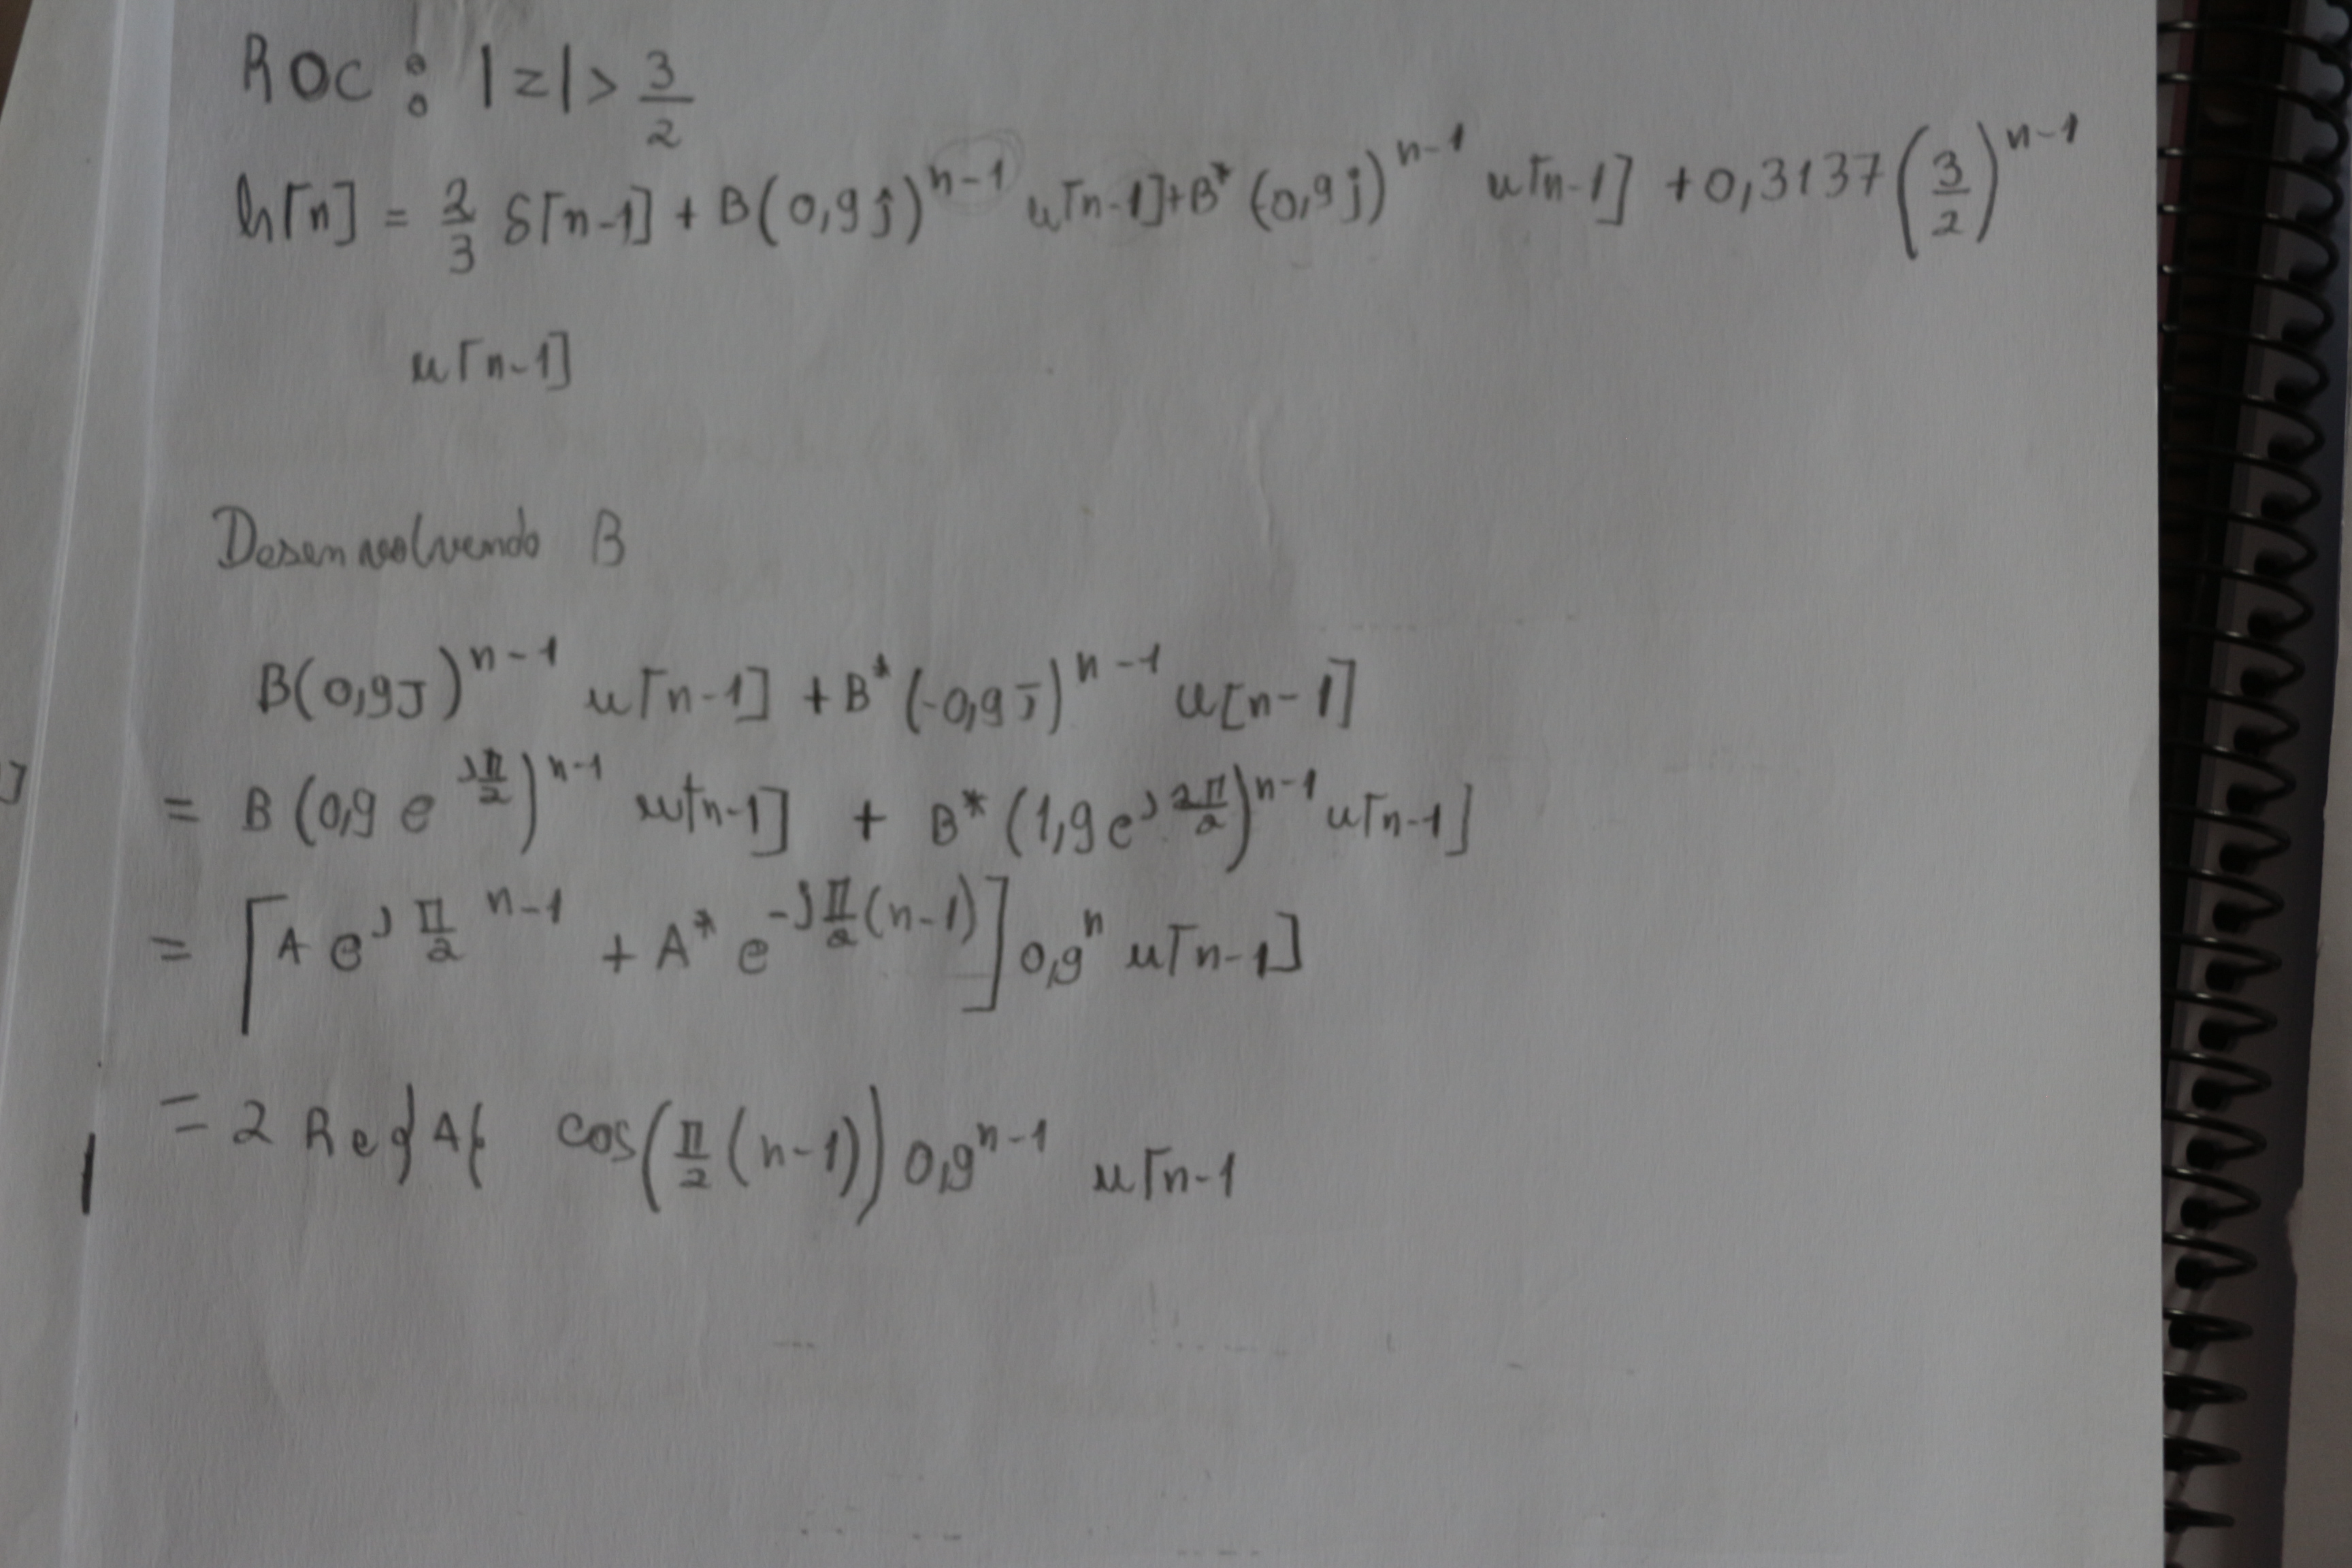 ROC : |z| > 3/2
h[n] = 2/3 δ[n-1] + B(0,9j)^{n-1} u[n-1] + B* (0,9j)^{n-1} u[n-1] + 0,3137 (3/2)^{n-1}
u[n-1]
Desenvolvendo B
B(0,9J)^{n-1} u[n-1] + B* (-0,9J)^{n-1} u[n-1]
= B (0,9 e^{Jπ/2})^{n-1} u[n-1] + B* (1,9 e^{J 2π/2})^{n-1} u[n-1]
= [A e^{J π/2 n-1} + A* e^{-J π/2 (n-1)}] 0,9^n u[n-1]
= 2 Re}A{ cos(π/2 (n-1)) 0,9^{n-1} u[n-1